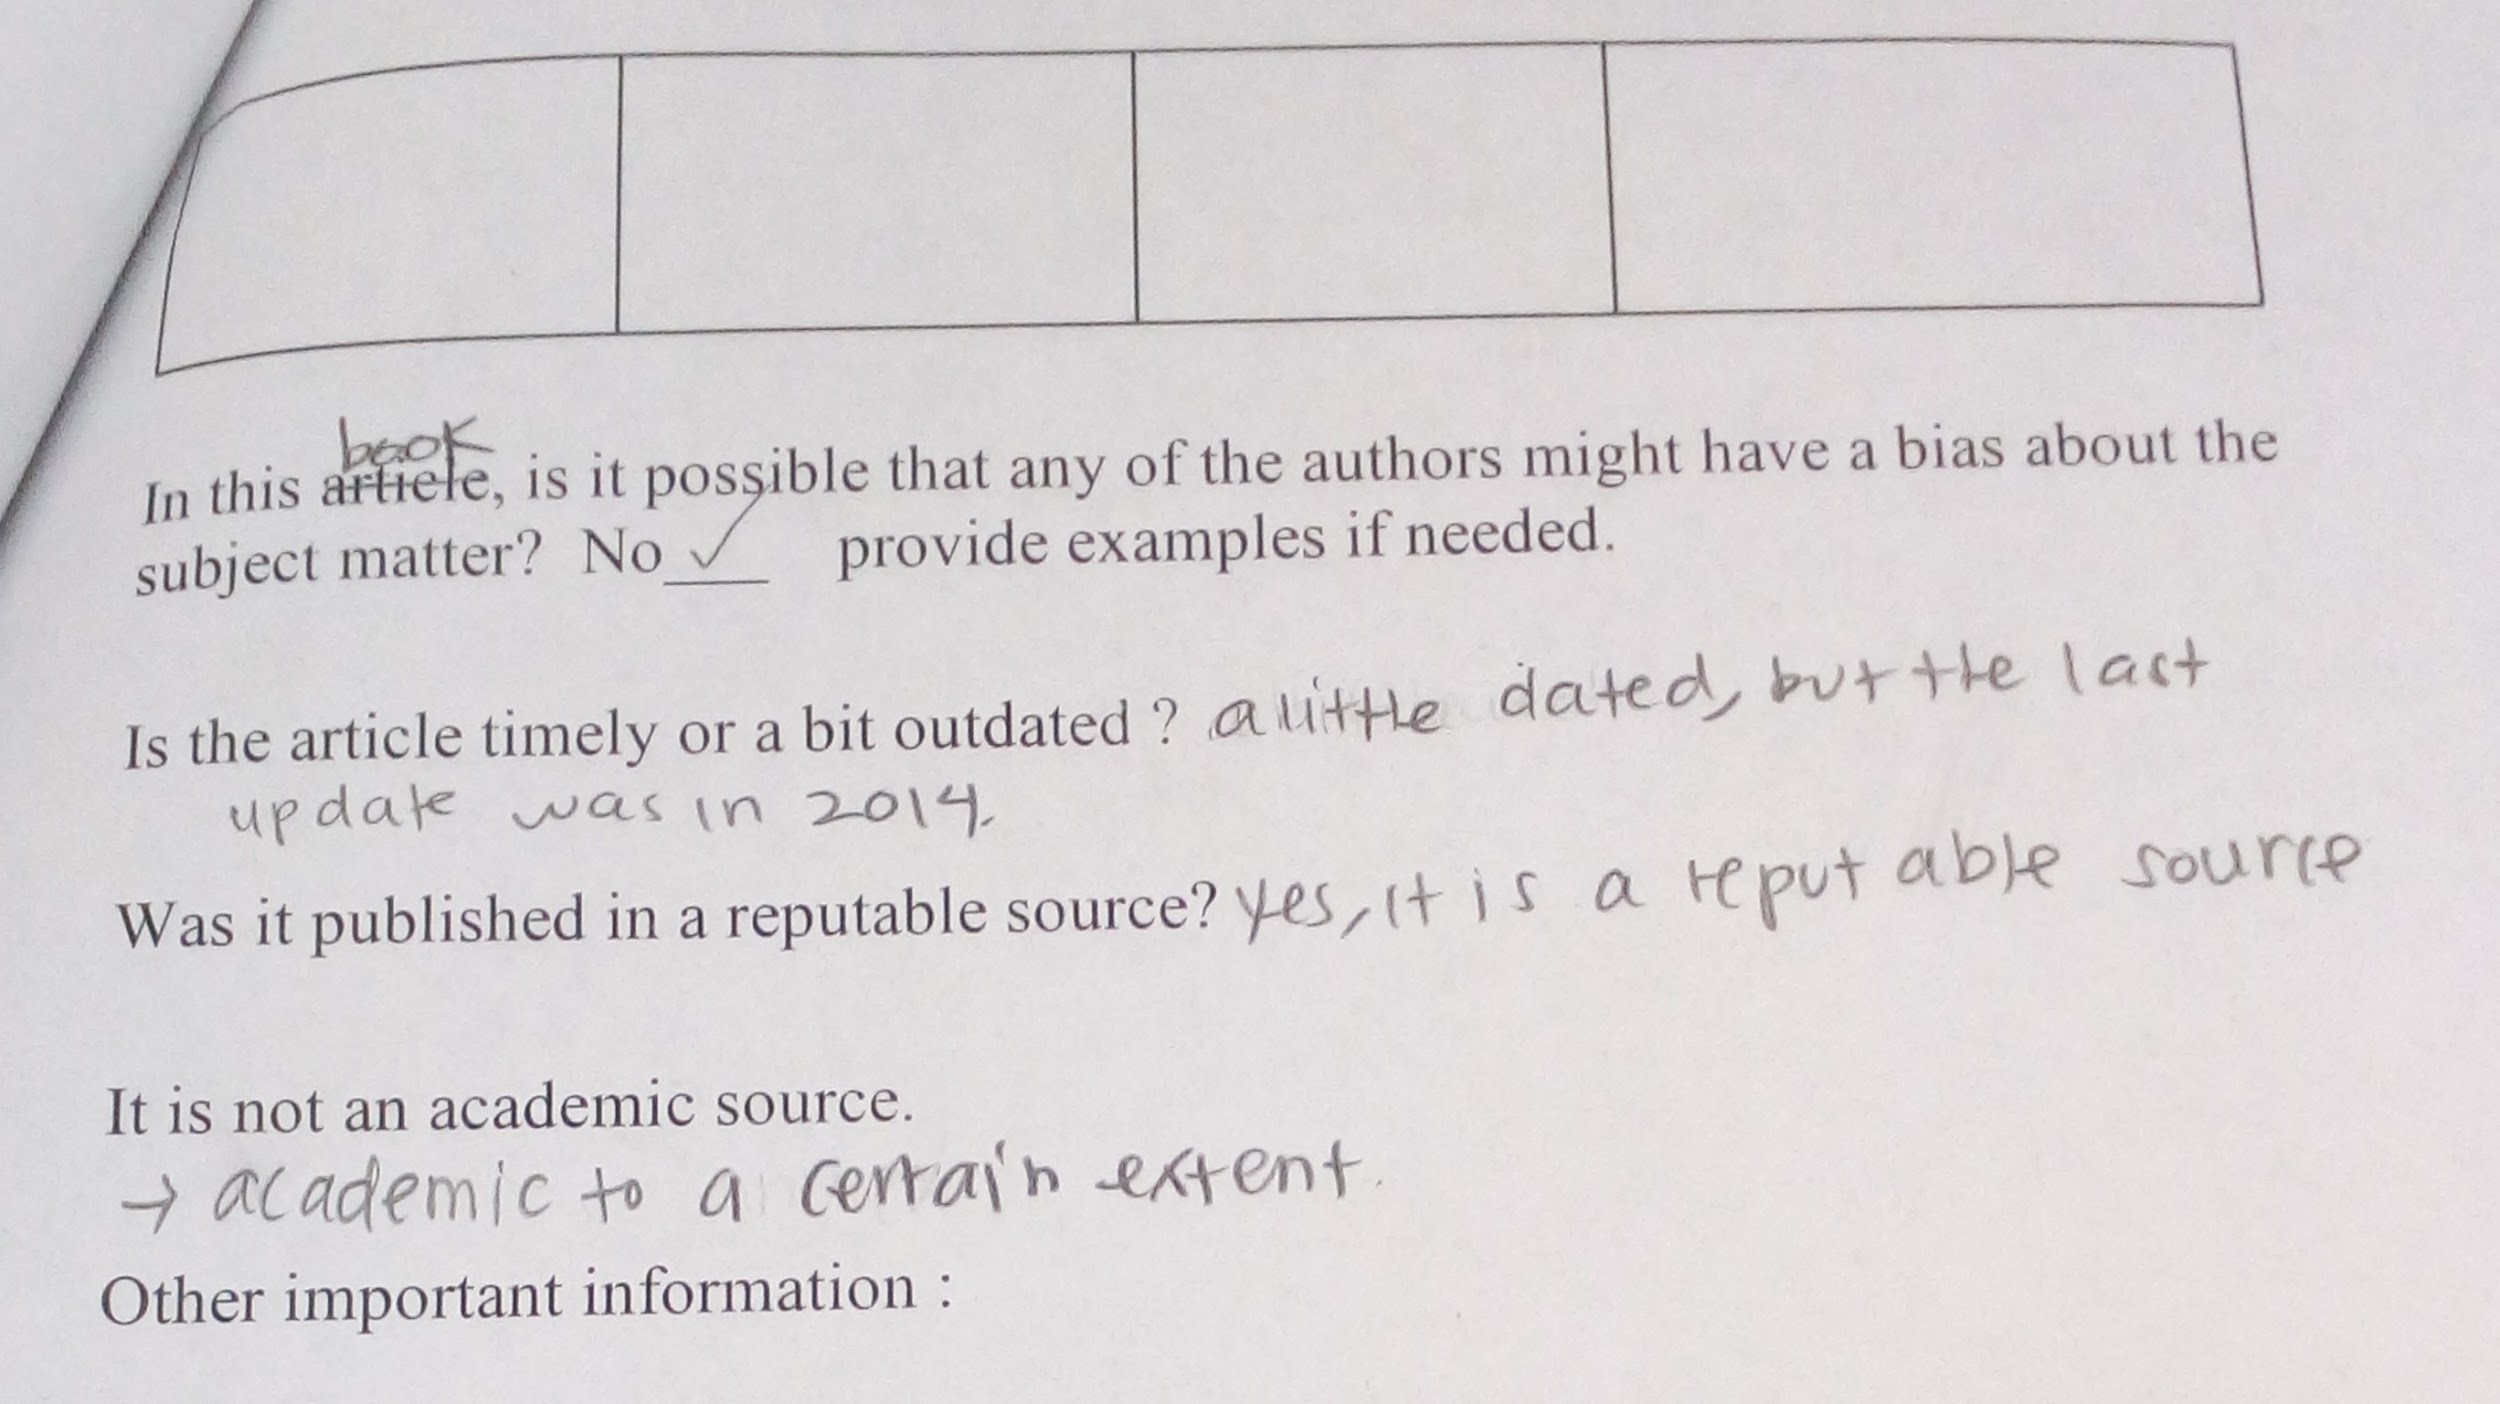 book
In this article, is it possible that any of the authors might have a bias about the
subject matter? No ✓ provide examples if needed.
Is the article timely or a bit outdated ? a little dated, but the last
update was in 2014.
Was it published in a reputable source? yes, it is a reputable source
It is not an academic source.
→ academic to a certain extent.
Other important information :